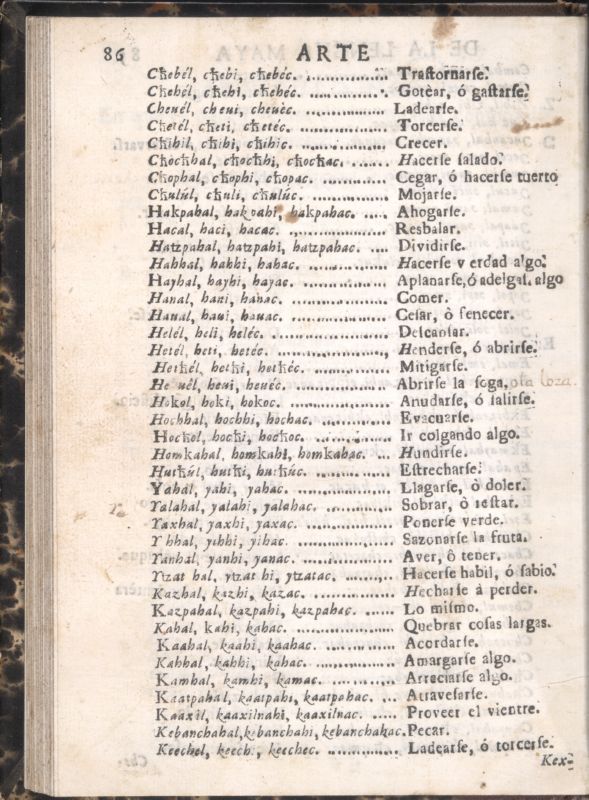 86 ARTE
Cħebél, cħebi, cħebéc. ................ Traſtornarſe.
Cħehél, cħehi, cħehéc. ............ Gotèar, ó gaſtarſe.
Cheuél, cheui, cheuèc. ................ Ladearſe.
Cħetél, cħeti, cħetéc. ................ Torcerſe.
Cħihil, cħihi, cħihic. ................ Crecer.
Cħocħhal, cħocħhi, cħocħac. ...... Hacerſe ſalado.
Cħophal, cħophi, cħopac. ........ Cegar, ó hacerſe tuerto
Cħulúl, cħuli, cħulúc. .............. Mojarſe.
Hakpahal, hakpahi, hakpahac. ..... Ahogarſe.
Hacal, haci, hacac. ................ Resbalar.
Hatzpahal, hatzpahi, hatzpahac. .... Dividirſe.
Hahhal, hahhi, hahac. .............. Hacerſe v erdad algo.
Hayhal, hayhi, hayac. ............. Aplanarſe, ó adelgaſ. algo
Hanal, hani, hanac. ................ Comer.
Haual, haui, hauac. ................ Ceſar, ò fenecer.
Helél, heli, heléc. .................. Deſcanſar.
Hetél, heti, hetéc. ................, Henderſe, ó abrirſe.
Hetħél, hetħi, hetħéc. .............. Mitigarſe.
He uél, heui, heuéc. ................ Abrirſe la ſoga, ota loza.
Hokol, hoki, hokoc. ................ Anudarſe, ó ſalirſe.
Hochhal, hochhi, hochac. .......... Evacuarſe.
Hocħol, hocħi, hocħoc. ............. Ir colgando algo.
Homkahal, homkahi, homkahac. ... Hundirſe.
Hutħúl, hutħi, hutħúc. ............. Eſtrecharſe.
Yahàl, yahi, yahac. ................ Llagarſe, ò doler.
Yalahal, yalahi, yalahac. .......... Sobrar, ò reſtar.
Yaxhal, yaxhi, yaxac. ............. Ponerſe verde.
Y hhal, yihhi, yihac. .............. Sazonarſe la fruta.
Yanhal, yanhi, yanac. ............. Aver, ô tener.
Ytzat hal, ytzat hi, ytzatac. ......... Hacerſe habil, ó ſabio.
Kazhal, kazhi, kazac. ............. Hecharſe à perder.
Kazpahal, kazpahi, kazpahac. ...... Lo miſmo.
Kahal, kahi, kahac. ................ Quebrar coſas largas.
Kaahal, kaahi, kaahac. ............ Acordarſe.
Kahhal, kahhi, kahac. ............. Amargarſe algo.
Kamhal, kamhi, kamac. ........... Arreciarſe algo.
Kaatpahal, kaatpahi, kaatpahac. ... Atraveſarſe.
Kaaxil, kaaxilnahi, kaaxilnac. ..... Proveer el vientre.
Kebanchahal, kebanchahi, kebanchahac. Pecar.
Keechel, keechi, keechec. ............. Ladearſe, ó torcerſe.
Kex-